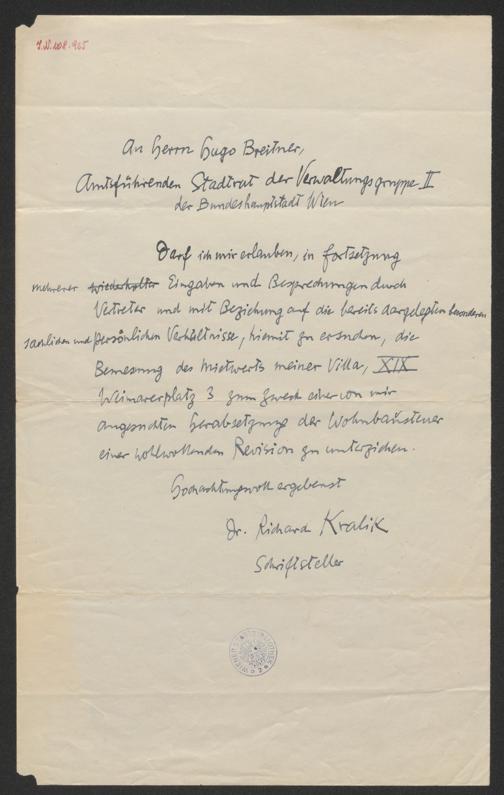 J.N. 108.965
An Herrn Hugo Breitner,
Amtsführenden Stadtrat der Verwaltungsgruppe II
der Bundeshauptstadt Wien
Darf ich mir erlauben, in Fortsetzung
mehrerer wiederholter Eingaben und Besprechungen durch
Vertreter und mit Beziehung auf die bereits dargelegten besonderen
sachlichen und persönlichen Verhältnisse, hiemit zu ersuchen, die
Bemessung des Mietwerts meiner Villa, XIX
Weimarerplatz 3 zum Zweck einer von mir
angesuchten Herabsetzung der Wohnbausteuer
einer wohlwollenden Revision zu unterziehen.
Hochachtungsvoll ergebenst
Dr. Richard Kralik
Schriftsteller
WIENER STADTBIBLIOTHEK